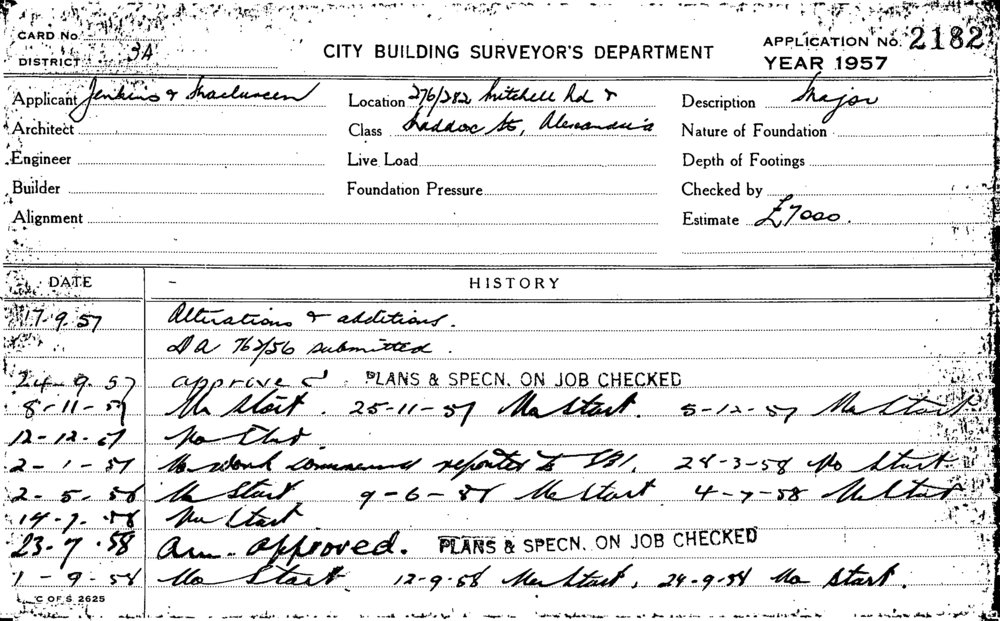 CARD No
DISTRICT 3A
CITY BUILDING SURVEYOR'S DEPARTMENT
APPLICATION No. 2182
YEAR 1957
Applicant Jenkins &
Location 276/282 Mitchell Rd &
Description Major
Architect
Class Maddox St, Alexandria
Nature of Foundation
Engineer
Live Load
Depth of Footings
Builder
Foundation Pressure
Checked by
Alignment
Estimate £7000.
DATE
HISTORY
17.9.57 Alterations & additions.
DA 762/56 submitted.
24-9.57 approved PLANS & SPECN. ON JOB CHECKED
8-11-57 No Start. 25-11-57 No Start. 5-12-57 No Start
12-12-57 No Start
2-1-57 No work commenced reported to 24-3-58 No Start
2-5-58 No Start 9-6-58 No Start 4-7-58 No Start
14-7-58 No Start
23-7.58 Am. approved. PLANS & SPECN. ON JOB CHECKED
1-9-58 No Start 12-9-58 No Start, 24-9-58 No Start.
C OF S 2625